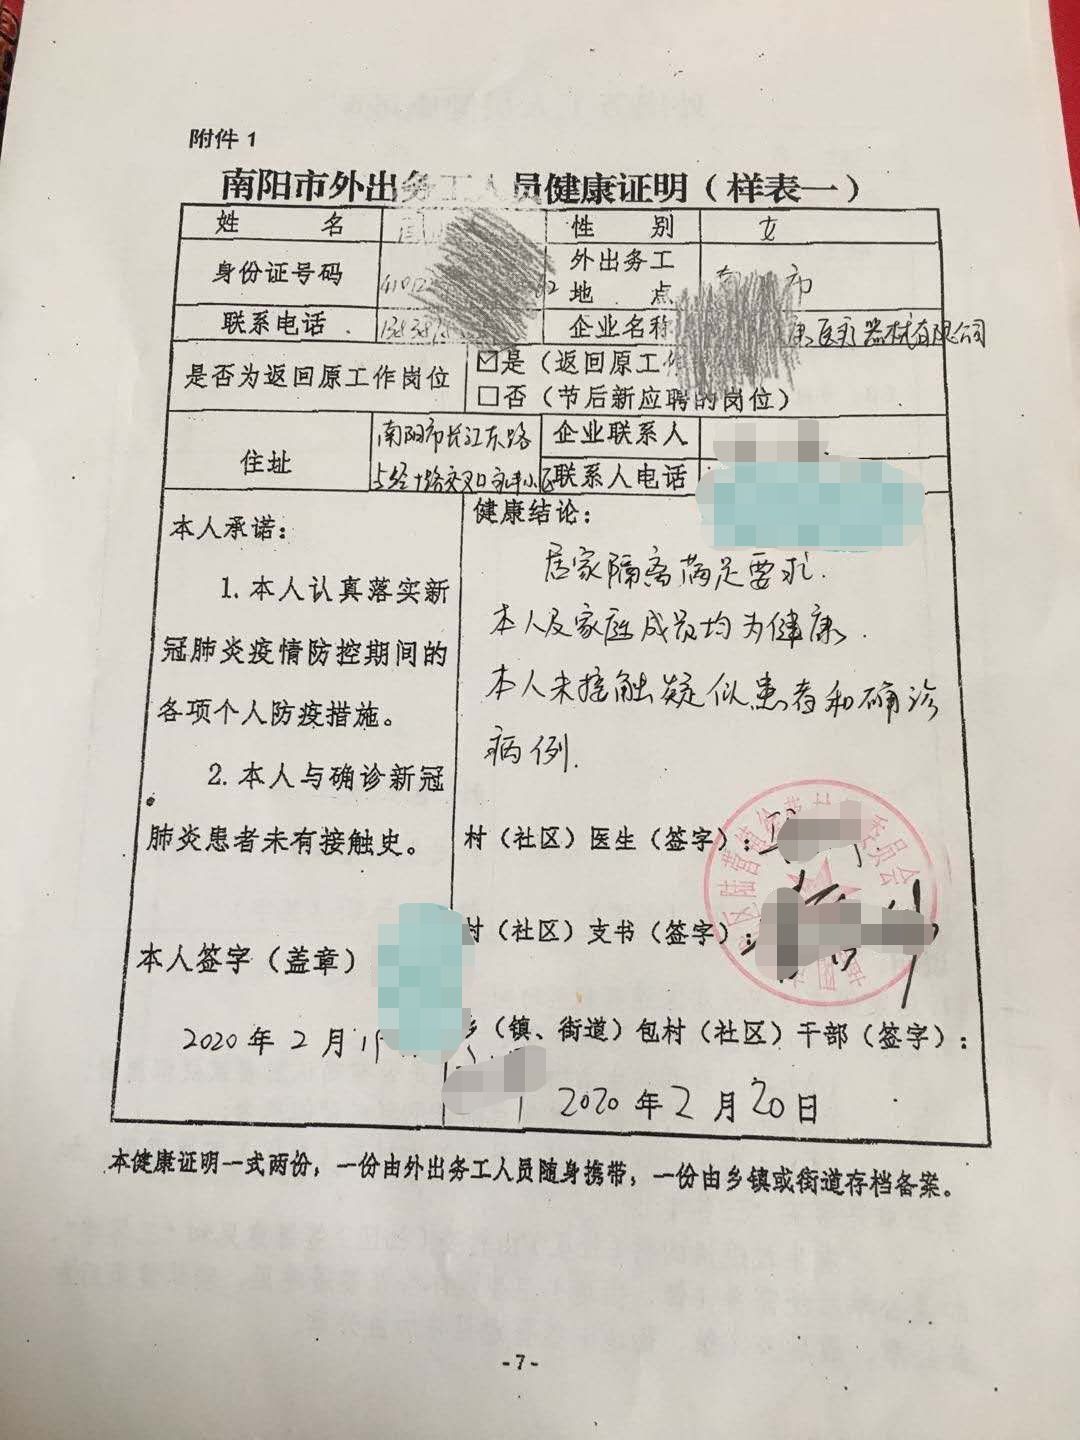 附件 1
南阳市外出务工人员健康证明（样表一）
姓 名
性 别 女
身份证号码
外出务工地 点 市
联系电话
企业名称 康医疗器械有限公司
是否为返回原工作岗位
☑是（返回原工作
□否（节后新应聘的岗位）
住址
南阳市长江东路
与经十路交叉口
企业联系人
联系人电话
本人承诺：
1. 本人认真落实新
冠肺炎疫情防控期间的
各项个人防疫措施。
2. 本人与确诊新冠
肺炎患者未有接触史。
本人签字（盖章）
2020 年 2 月
健康结论：
居家隔离满足要求.
本人及家庭成员均为健康.
本人未接触疑似患者和确诊
病例.
村（社区）医生（签字）：
村（社区）支书（签字）：
乡（镇、街道）包村（社区）干部（签字）：
2020 年 2 月 20 日
本健康证明一式两份，一份由外出务工人员随身携带，一份由乡镇或街道存档备案。
- 7 -